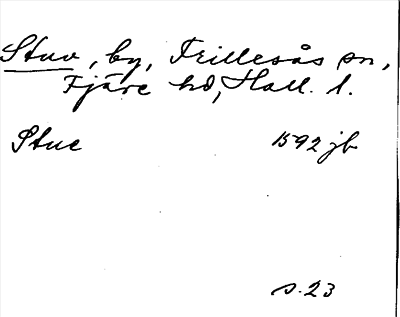 Stuv, by, Frillesås sn,
Fjäre hd, Hall. l.
Stue 1592 jb
s. 23